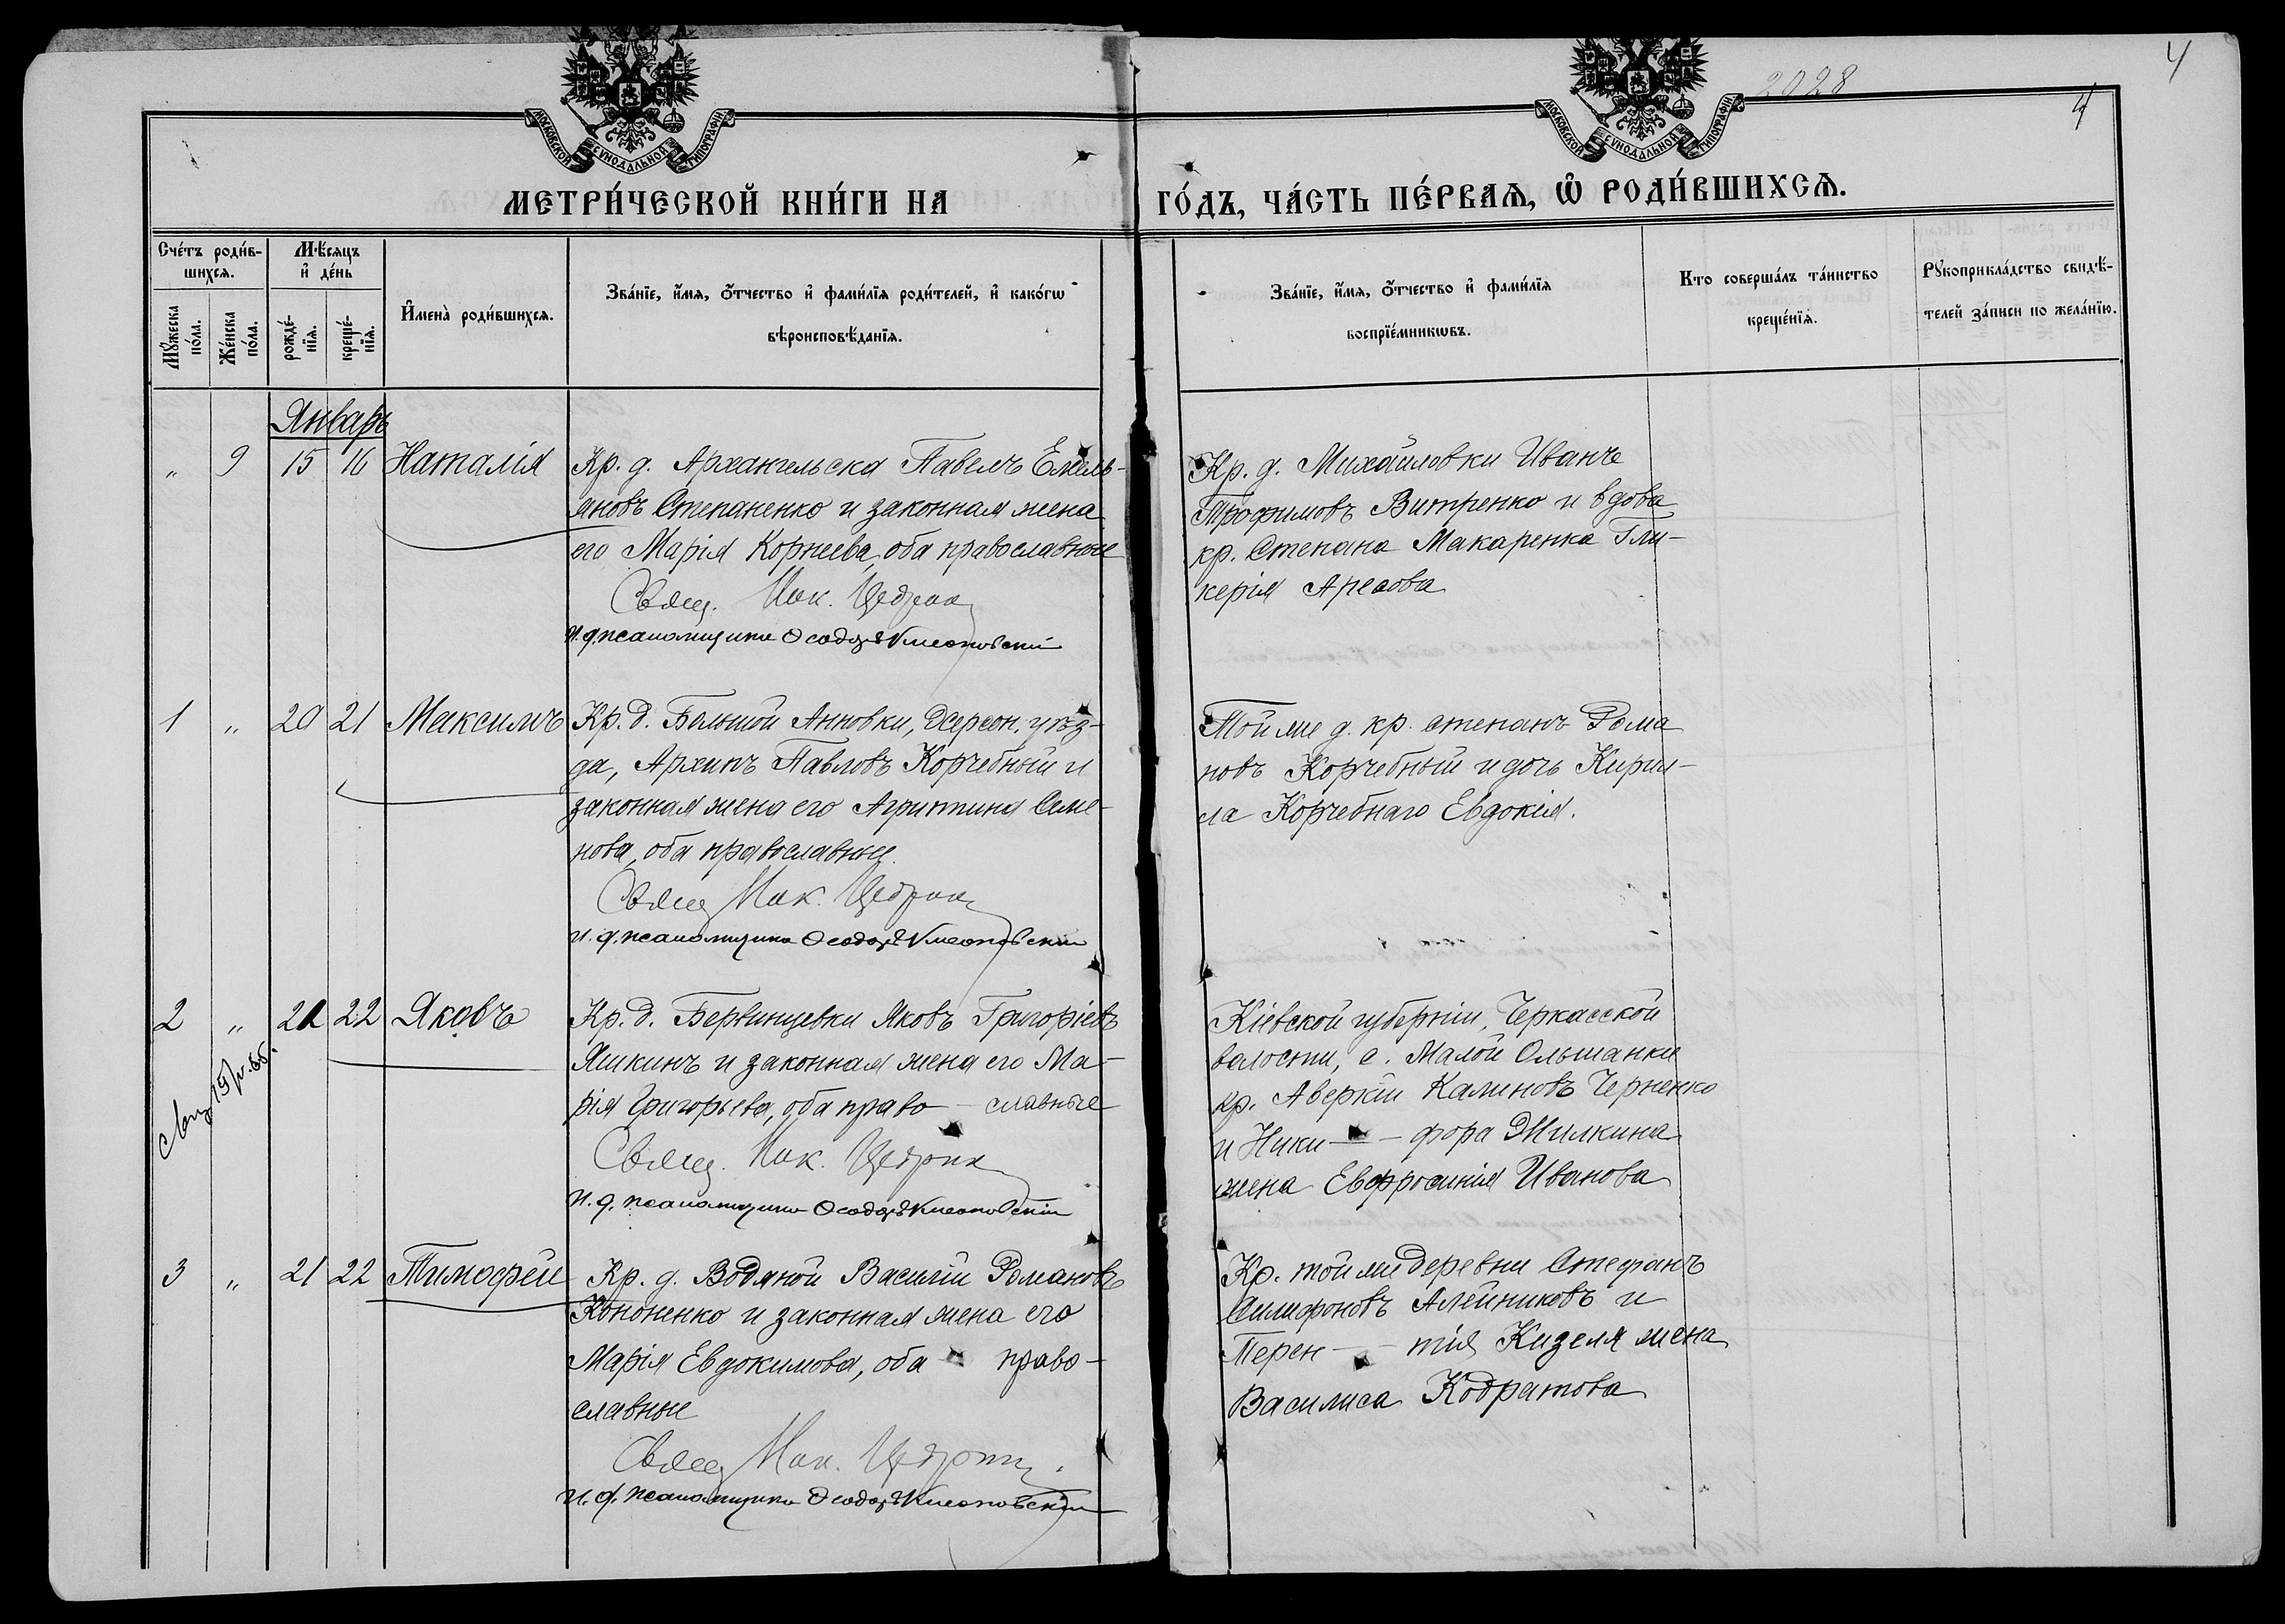 2028
4
4
МОСКОВСКОЙ СѴНОДАЛЬНОЙ ТИПОГРАФІИ
МОСКОВСКОЙ СѴНОДАЛЬНОЙ ТИПОГРАФІИ
МЕТРИ́ЧЕСКОЙ КНИ́ГИ НА ГО́ДЪ, ЧА́СТЬ ПЕ́РВАѦ, Ѽ РОДИ́ВШИХСѦ.
Сче́тъ роди́в-
шихсѧ.
Мꙋ́жеска
по́ла.
Же́нска
по́ла.
Мѣ́сяцъ
и҆ де́нь
рожде́-
нїѧ.
креще́-
нїѧ.
И҆мена̀ роди́вшихсѧ.
Зва́нїе, и҆́мѧ, ѻ҆́тчество и҆ фами́лїѧ роди́телей, и҆ како́гѡ
вѣроисповѣ́данїѧ.
Зва́нїе, и҆́мѧ, ѻ҆́тчество и҆ фами́лїѧ
воспрїе́мникѡвъ.
Кто соверша́лъ та́инство
креще́нїѧ.
Рꙋкоприкла́дство свидѣ́-
телей за́писи по жела́нїю.
Январь
„ 9 15 16 Наталія
Кр. д. Архангельска Павелъ Емель-
яновъ Степаненко и законная жена
его Марія Корнеева, оба православные
Свящ. Мак.
И. д. псаломщика Ѳеодоръ
Кр. д. Михайловки Иванъ
Трофимовъ Витренко и вдова
кр. Степана Макаренка Гли-
керія
1 „ 20 21 Максимъ
Кр. д. Большой Анновки, Херсон. уѣз-
да, Архипъ Павловъ Корчебный и
законная жена его Агриппина Семе-
нова, оба православные.
Свящ. Мак.
И. д. псаломщика Ѳеодоръ
Той же д. кр. Степанъ Рома
новъ Корчебный и дочь Кирил-
ла Корчебнаго Евдокія.
2 „ 22 Яковъ
Кр. д. Яковъ Григоріевъ
Яшкинъ и законная жена его Ма-
рія Григорьева, оба право - славные
Свящ. Мак.
И. д. псаломщика Ѳеодоръ
Кіевской губерніи, Черкасской
волости, с. Малой Ольшанки
кр. Аверкій Калиновъ Черненко
и Ники - фора
жена Евфросинія Иванова
3 „ 21 22 Тимофей
Кр. д. Водяной Василій Романовъ
Кононенко и законная жена его
Марія Евдокимова, оба право-
славные
Свящ. Мак.
И. д. псаломщика Ѳеодоръ
Кр. той же деревни Стефанъ
Алейниковъ и
Терен - тія Кизеля жена
Василиса Кодратова